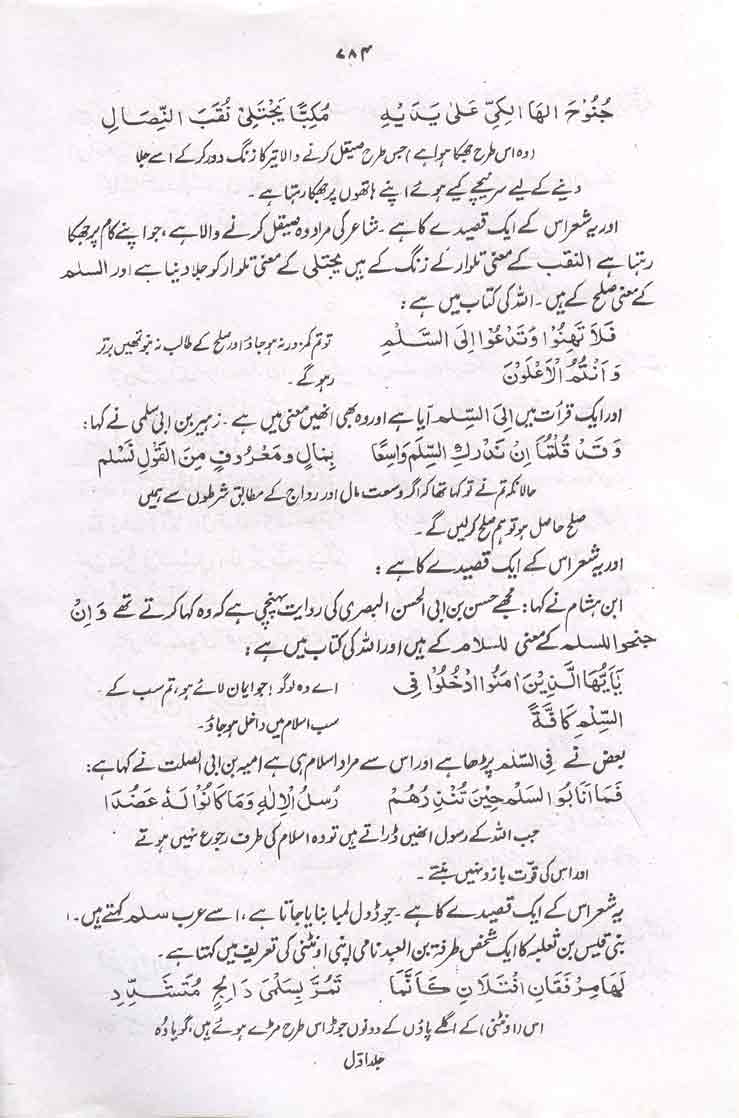 ۷۸۴
جُنُوْحَ الهَا الِكِيِّ عَلىٰ يَدَيْهِ مُكِبًّا يَجْتَلِيْ نُقَبَ النِّصَالِ
(وہ اس طرح جھکا ہوا ہے) جس طرح صیقل کرنے والا تیر کا زنگ دور کر کے اسے جلا
دینے کے لیے سر نیچے کیے ہوئے اپنے ہاتھوں پر جھکا رہتا ہے ۔
اور یہ شعر اس کے ایک قصیدے کا ہے ۔ شاعر کی مراد وہ صیقل کرنے والا ہے ، جو اپنے کام پر جھکا
رہتا ہے النقب کے معنی تلوار کے زنگ کے ہیں یجتلی کے معنی تلوار کو جلا دینا ہے اور السلم
کے معنی صلح کے ہیں ۔ اللہ کی کتاب میں ہے :
فَلَا تَهِنُوْا وَتَدْعُوْا اِلَى السَّلْمِ تو تم کمزور نہ ہو جاؤ اور صلح کے طالب نہ بنو تمھیں برتر
وَاَنْتُمُ الْاَعْلَوْنَ رہو گے ۔
اور ایک قرأت میں اِلَى السِّلْمِ آیا ہے اور وہ بھی انھیں معنی میں ہے ۔ زہیر بن ابی سلمی نے کہا :
وَقَدْ قُلْتُمَا اِنْ نُدْرِكِ السِّلْمَ وَاسِعًا بِمَالٍ وَمَعْرُوْفٍ مِنَ الْقَوْلِ نَسْلَمِ
حالانکہ تم نے تو کہا تھا کہ اگر وسعت مال اور رواج کے مطابق شرطوں سے ہمیں
صلح حاصل ہو تو ہم صلح کر لیں گے ۔
اور یہ شعر اس کے ایک قصیدے کا ہے :
ابن ہشام نے کہا : مجھے حسن بن ابی الحسن البصری کی روایت پہنچی ہے کہ وہ کہا کرتے تھے وَاِنْ
جنحوا للسلم کے معنی للسلام کے ہیں اور اللہ کی کتاب میں ہے :
يٰاَيُّهَا الَّذِيْنَ اٰمَنُوْا ادْخُلُوْا فِي اے وہ لوگو! جو ایمان لائے ہو، تم سب کے ۔
السِّلْمِ كَافَّةً سب اسلام میں داخل ہو جاؤ ۔
بعض نے فِي السَّلْمِ پڑھا ہے اور اس سے مراد اسلام ہی ہے امیہ بن ابی الصلت نے کہا ہے :
فَمَا اَنَابُوْا السَلْمِ حِيْنَ تُنْذِرُهُمْ رُسُلُ الْاِلٰهِ وَمَا كَانُوْا لَهُ عَضُدَا
جب اللہ کے رسول انھیں ڈراتے ہیں تو وہ اسلام کی طرف رجوع نہیں ہوتے
اور اس کی قوت بازو نہیں بنتے ۔
یہ شعر اس کے ایک قصیدے کا ہے ۔ جو ڈول لمبا بنایا جاتا ہے ، اسے عرب سلم کہتے ہیں ۔
بنی قیس بن ثعلبہ کا ایک شخص طرفۃ بن العبد نامی اپنی اونٹنی کی تعریف میں کہتا ہے ۔
لَهَا مِرْفَقَانِ اَفْتَلَانِ كَاَنَّمَا تَمُرُّ بِسَلْمَىْ دَالِجٍ مُتَشَدِّدِ
اس (اونٹنی) کے اگلے پاؤں کے دونوں جوڑ اس طرح مڑے ہوئے ہیں ، گویا وُہ
جلد اوّل